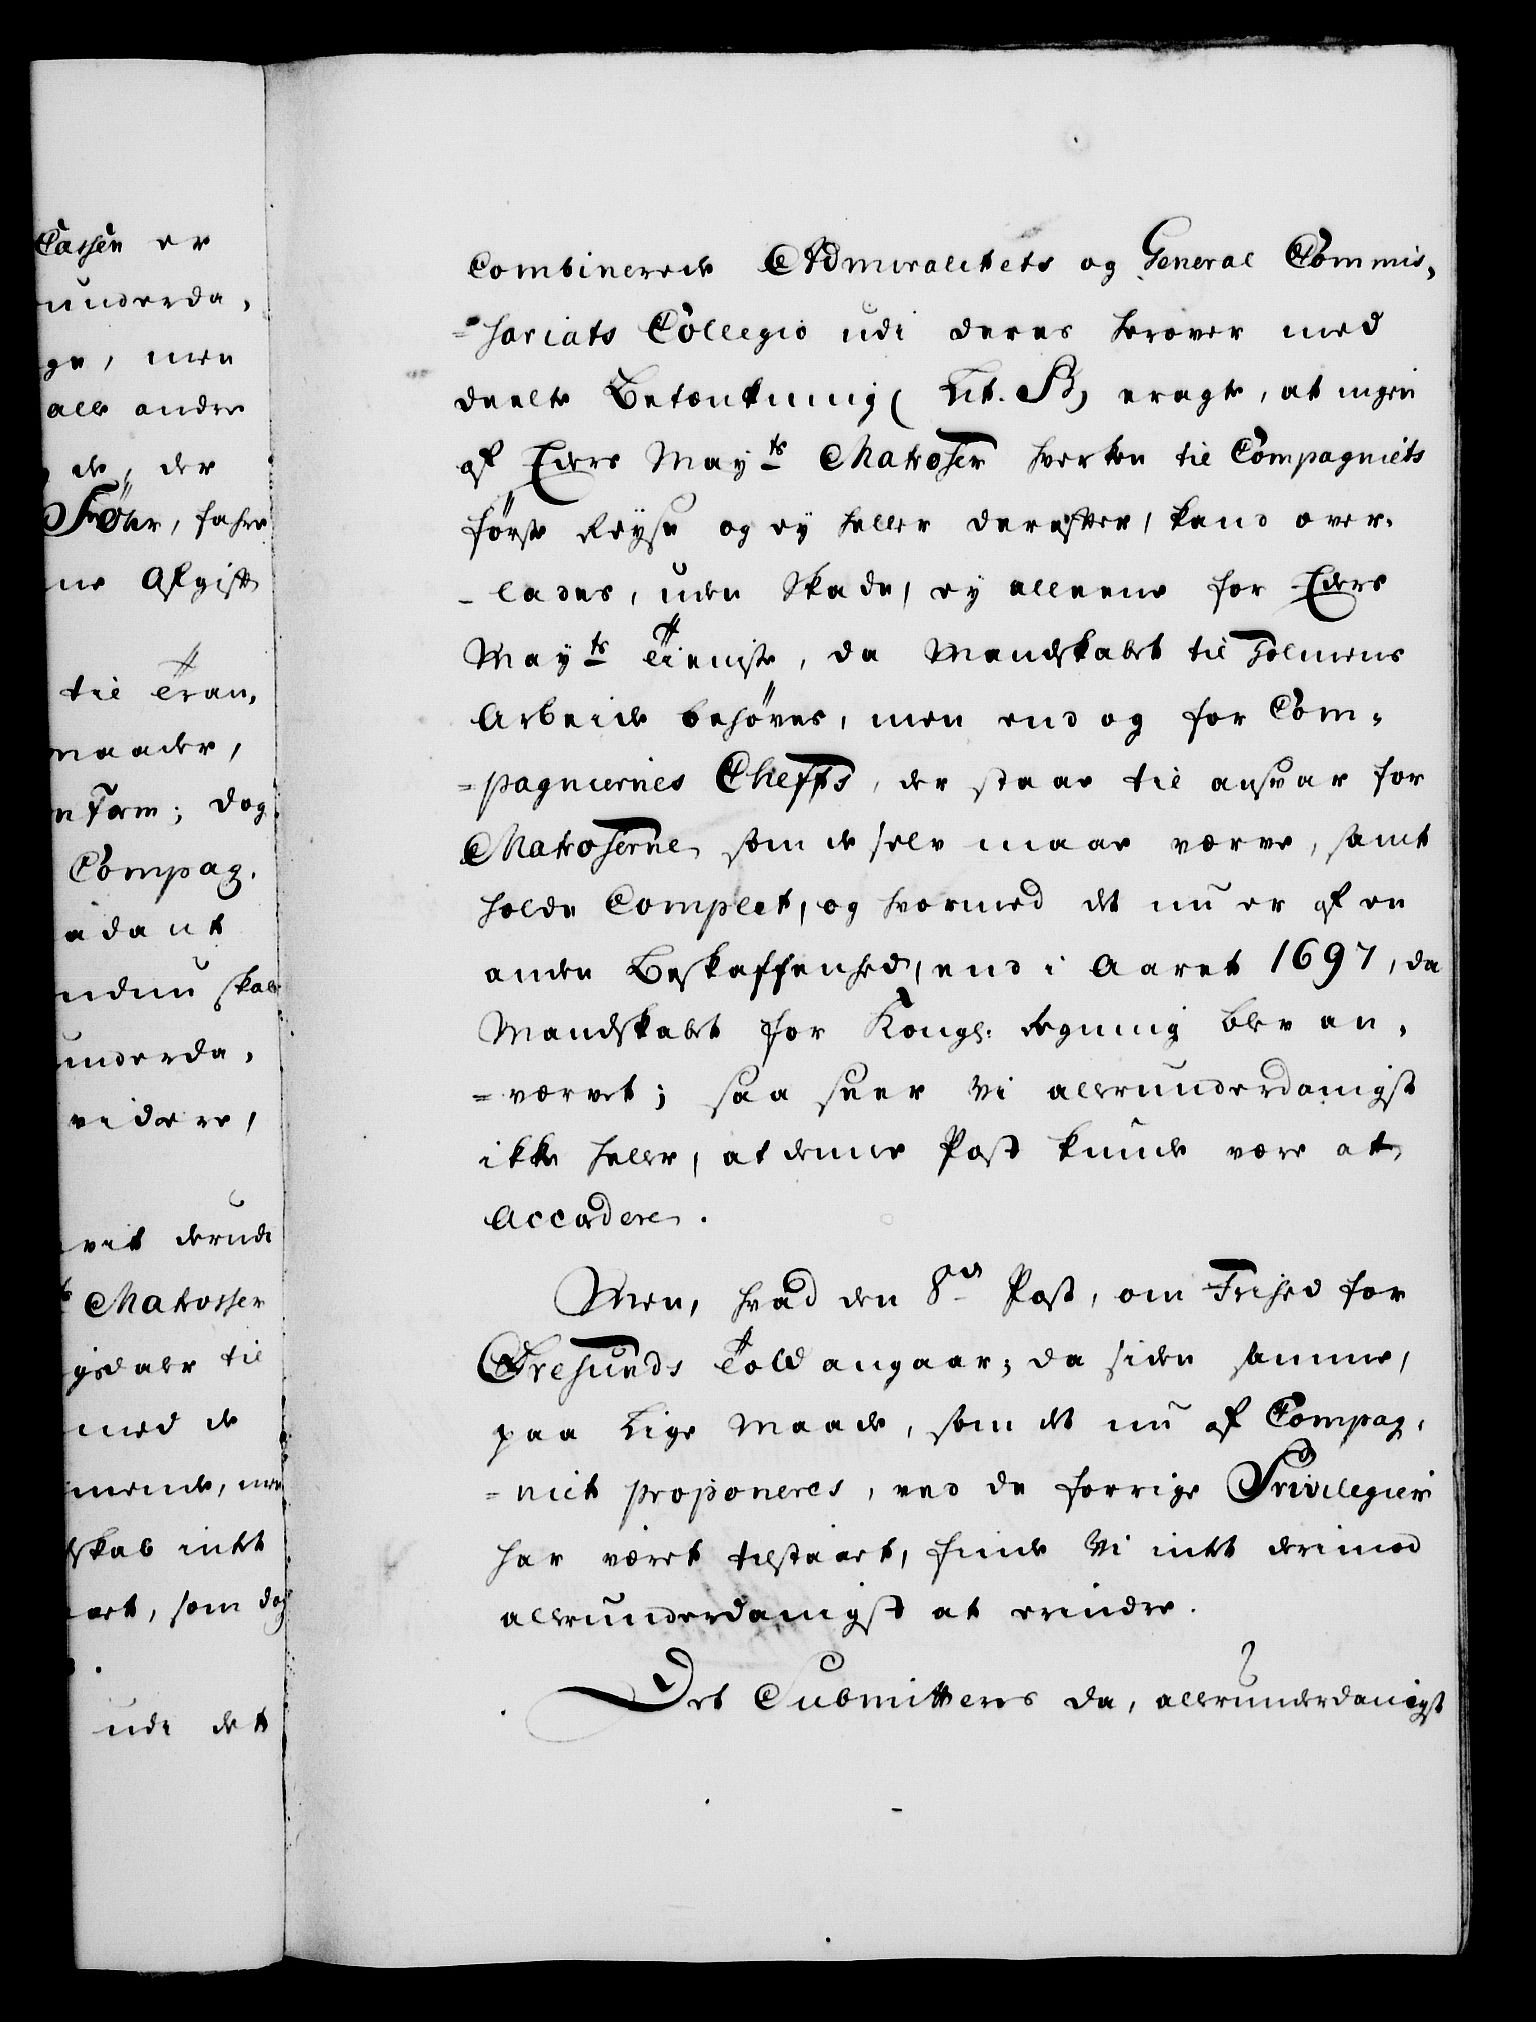 Cassen er
underda,
ge, men
alle andre
de, der
Föhr, fahre
ne Afgift
til Tran,
maader,
n Form; dog
Compag,
adant
ndnu skal
underda,
videre,
vit derudi
Matrosser
gsdaler til
med de
mende, men
skab intet
aret, som dog
udi det
Combinerede Admiralitets og General Commis,
=sariats Collegio udi deres herover med
deelte Betænkning (Lit. B) eragte, at ingen
af Eders Mayts Matroser hverken til Compagniets
første Reyse og ey heller derefter, kand over,
-lades, uden Skade, ey alleene for Eders
Mayts Tieniste, da Mandskabet til Holmens
Arbeide behøves, men end og for Com,
=pagniernes Cheffs, der staar til ansvar for
Matroserne, som de selv maae verve, samt
holde Complet, og hvormed det nu er af en
anden Beskaffenhed, end i Aaret 1697, da
Mandskabet for Kongl: Regning blev an,
=vervet; saa seer Vi allerunderdanigst
ikke heller, at denne Post kunde være at
Accordere.
Men, hvad den 8de Post, om Frihed for
Øresunds Told angaar; da siden samme,
paa Lige Maade, som det nu af Compag,
=niet proponeres, ved de forrige Privilegier
har været tilstaaet, finde Vi intet derimod
allerunderdanigst at erindre.
Det Submitteres da, allerunderdanigst